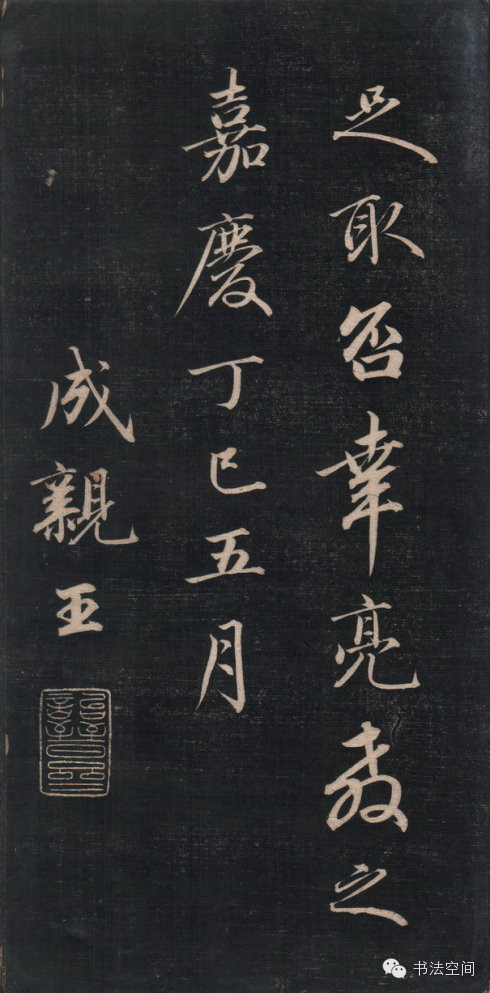 足取否幸亮教之
嘉慶丁巳五月
成親王
书法空间